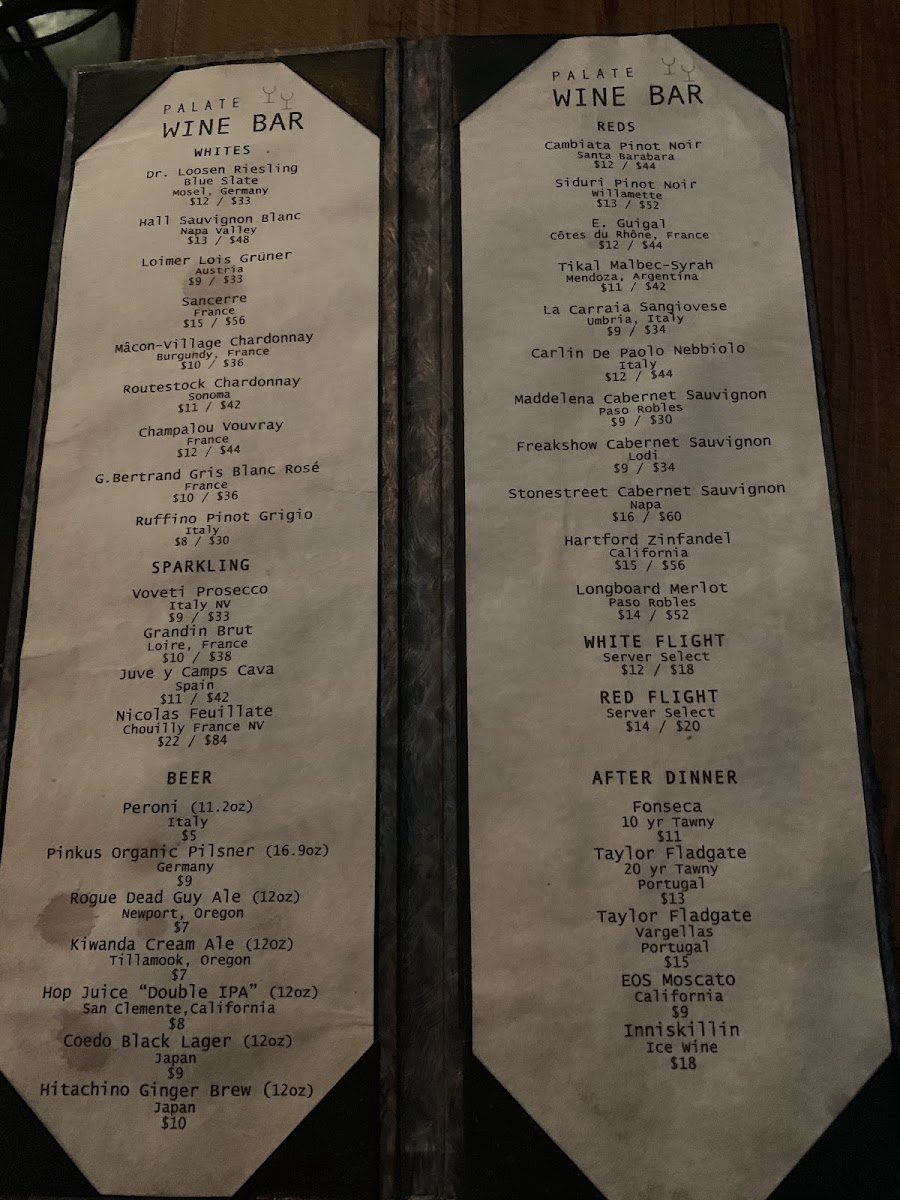 PALATE
WINE BAR
WHITES
Dr. Loosen Riesling
Blue Slate
Mosel, Germany
$12 / $33
Hall Sauvignon Blanc
Napa Valley
$13 / $48
Loimer Lois Grüner
Austria
$9 / $33
Sancerre
France
$15 / $56
Mâcon-Village Chardonnay
Burgundy, France
$10 / $36
Routestock Chardonnay
Sonoma
$11 / $42
Champalou Vouvray
France
$12 / $44
G.Bertrand Gris Blanc Rosé
France
$10 / $36
Ruffino Pinot Grigio
Italy
$8 / $30
SPARKLING
Voveti Prosecco
Italy NV
$9 / $33
Grandin Brut
Loire, France
$10 / $38
Juve y Camps Cava
Spain
$11 / $42
Nicolas Feuillate
Chouilly France NV
$22 / $84
BEER
Peroni (11.2oz)
Italy
$5
Pinkus Organic Pilsner (16.9oz)
Germany
$9
Rogue Dead Guy Ale (12oz)
Newport, Oregon
$7
Kiwanda Cream Ale (12oz)
Tillamook, Oregon
$7
Hop Juice “Double IPA” (12oz)
San Clemente,California
$8
Coedo Black Lager (12oz)
Japan
$9
Hitachino Ginger Brew (12oz)
Japan
$10
PALATE
WINE BAR
REDS
Cambiata Pinot Noir
Santa Barabara
$12 / $44
Siduri Pinot Noir
Willamette
$13 / $52
E. Guigal
Côtes du Rhône, France
$12 / $44
Tikal Malbec-Syrah
Mendoza, Argentina
$11 / $42
La Carraia Sangiovese
Umbria, Italy
$9 / $34
Carlin De Paolo Nebbiolo
Italy
$12 / $44
Maddelena Cabernet Sauvignon
Paso Robles
$9 / $30
Freakshow Cabernet Sauvignon
Lodi
$9 / $34
Stonestreet Cabernet Sauvignon
Napa
$16 / $60
Hartford Zinfandel
California
$15 / $56
Longboard Merlot
Paso Robles
$14 / $52
WHITE FLIGHT
Server Select
$12 / $18
RED FLIGHT
Server Select
$14 / $20
AFTER DINNER
Fonseca
10 yr Tawny
$11
Taylor Fladgate
20 yr Tawny
Portugal
$13
Taylor Fladgate
Vargellas
Portugal
$15
EOS Moscato
California
$9
Inniskillin
Ice Wine
$18